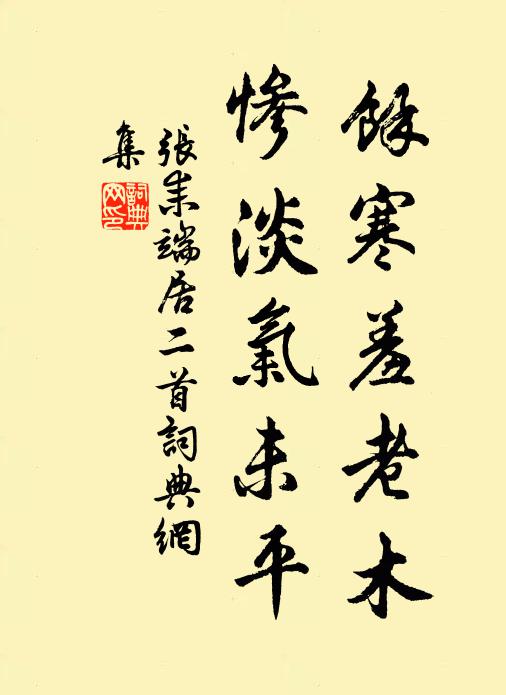 餘寒羞老木
慘淡氣未平
張耒端居二首詞典網
集
詞典
网印